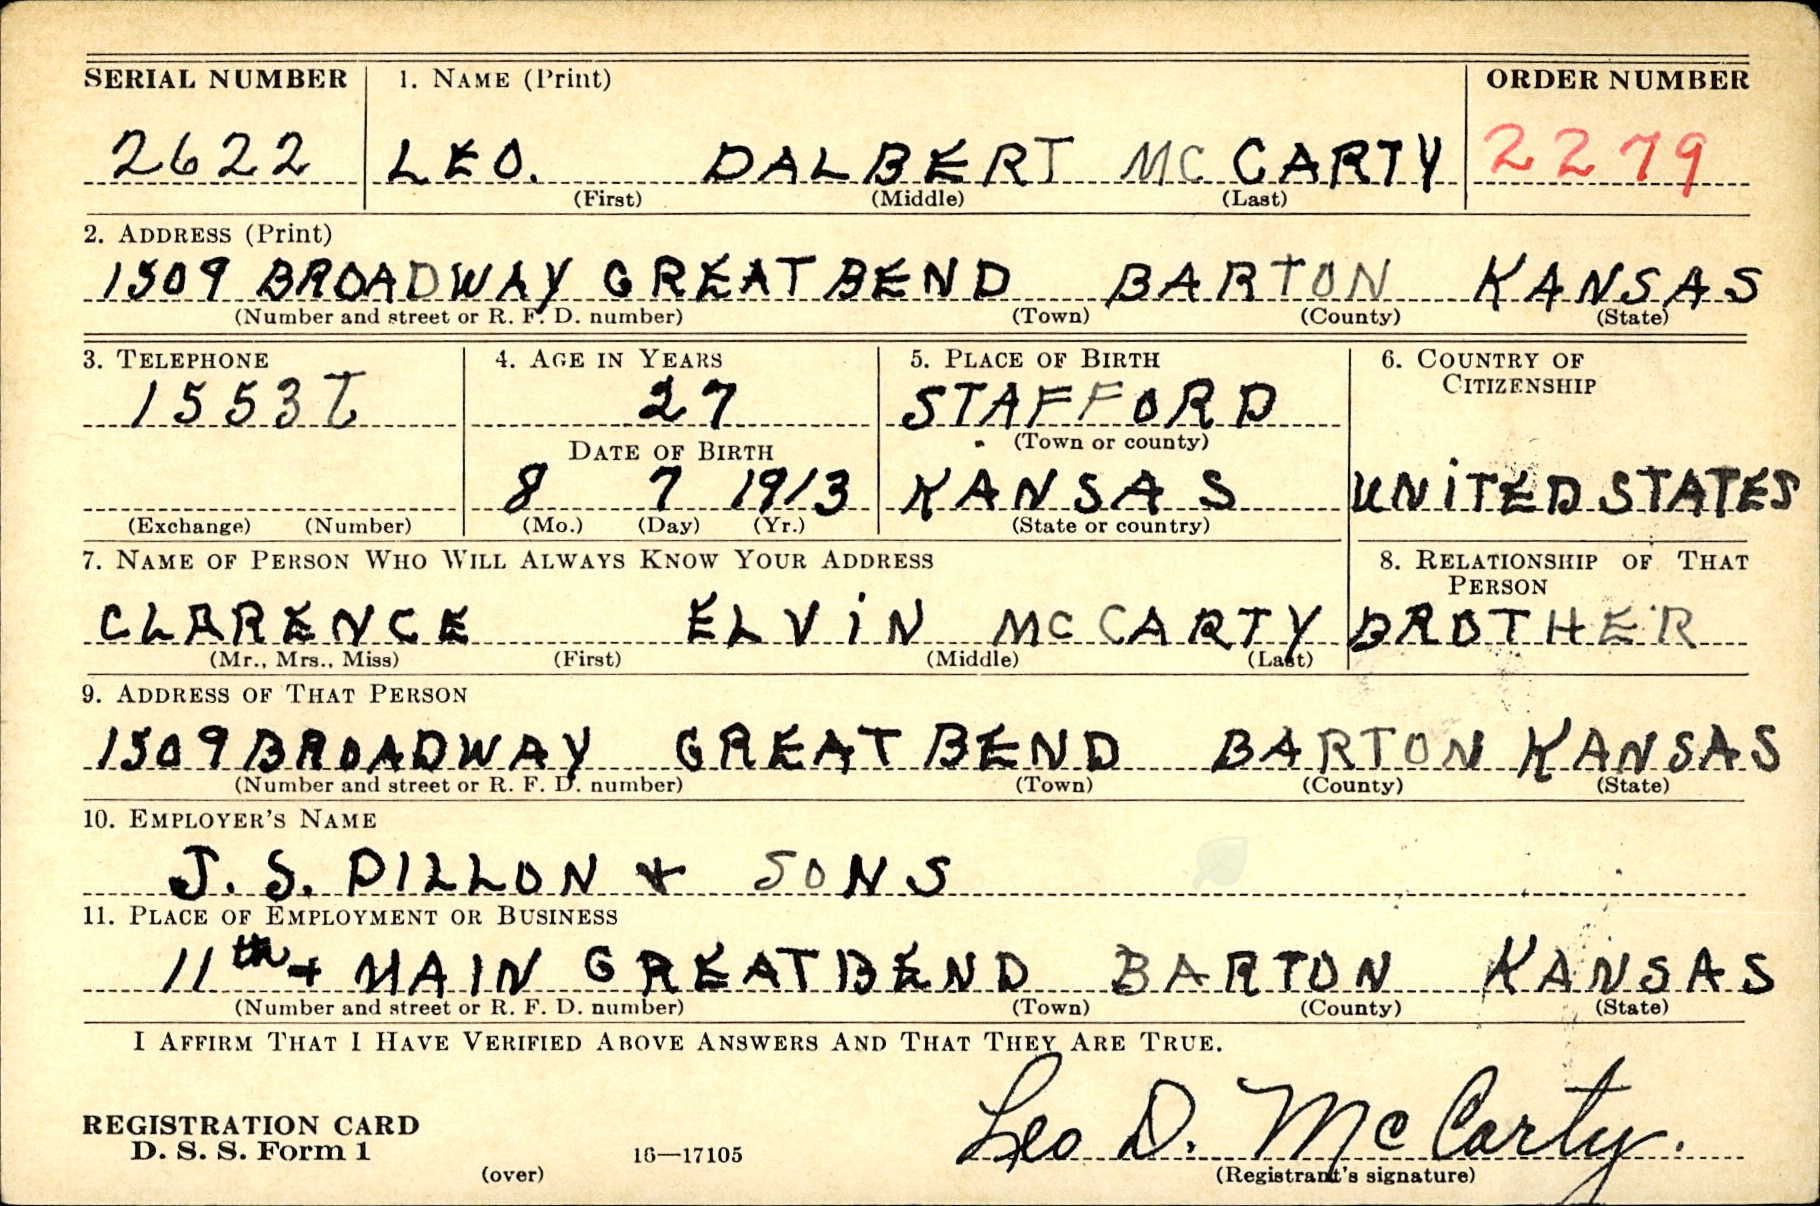 SERIAL NUMBER 1. NAME (Print) ORDER NUMBER
2622 LEO. DALBERT MC CARTY 2279
(First) (Middle) (Last)
2. ADDRESS (Print)
1509 BROADWAY GREAT BEND BARTON KANSAS
(Number and street or R. F. D. number) (Town) (County) (State)
3. TELEPHONE 4. AGE IN YEARS 5. PLACE OF BIRTH 6. COUNTRY OF
CITIZENSHIP
1553 27 STAFFORD
DATE OF BIRTH (Town or county)
8 7 1913 KANSAS UNITED STATES
(Exchange) (Number) (Mo.) (Day) (Yr.) (State or country)
7. NAME OF PERSON WHO WILL ALWAYS KNOW YOUR ADDRESS 8. RELATIONSHIP OF THAT
PERSON
CLARENCE ELVIN MC CARTY BROTHER
(Mr., Mrs., Miss) (First) (Middle) (Last)
9. ADDRESS OF THAT PERSON
1509 BROADWAY GREAT BEND BARTON KANSAS
(Number and street or R. F. D. number) (Town) (County) (State)
10. EMPLOYER'S NAME
J. S. DILLON & SONS
11. PLACE OF EMPLOYMENT OR BUSINESS
11th + MAIN GREAT BEND BARTON KANSAS
(Number and street or R. F. D. number) (Town) (County) (State)
I AFFIRM THAT I HAVE VERIFIED ABOVE ANSWERS AND THAT THEY ARE TRUE.
Leo D. McCarty.
REGISTRATION CARD
D. S. S. Form 1 16—17105
(over) (Registrant's signature)